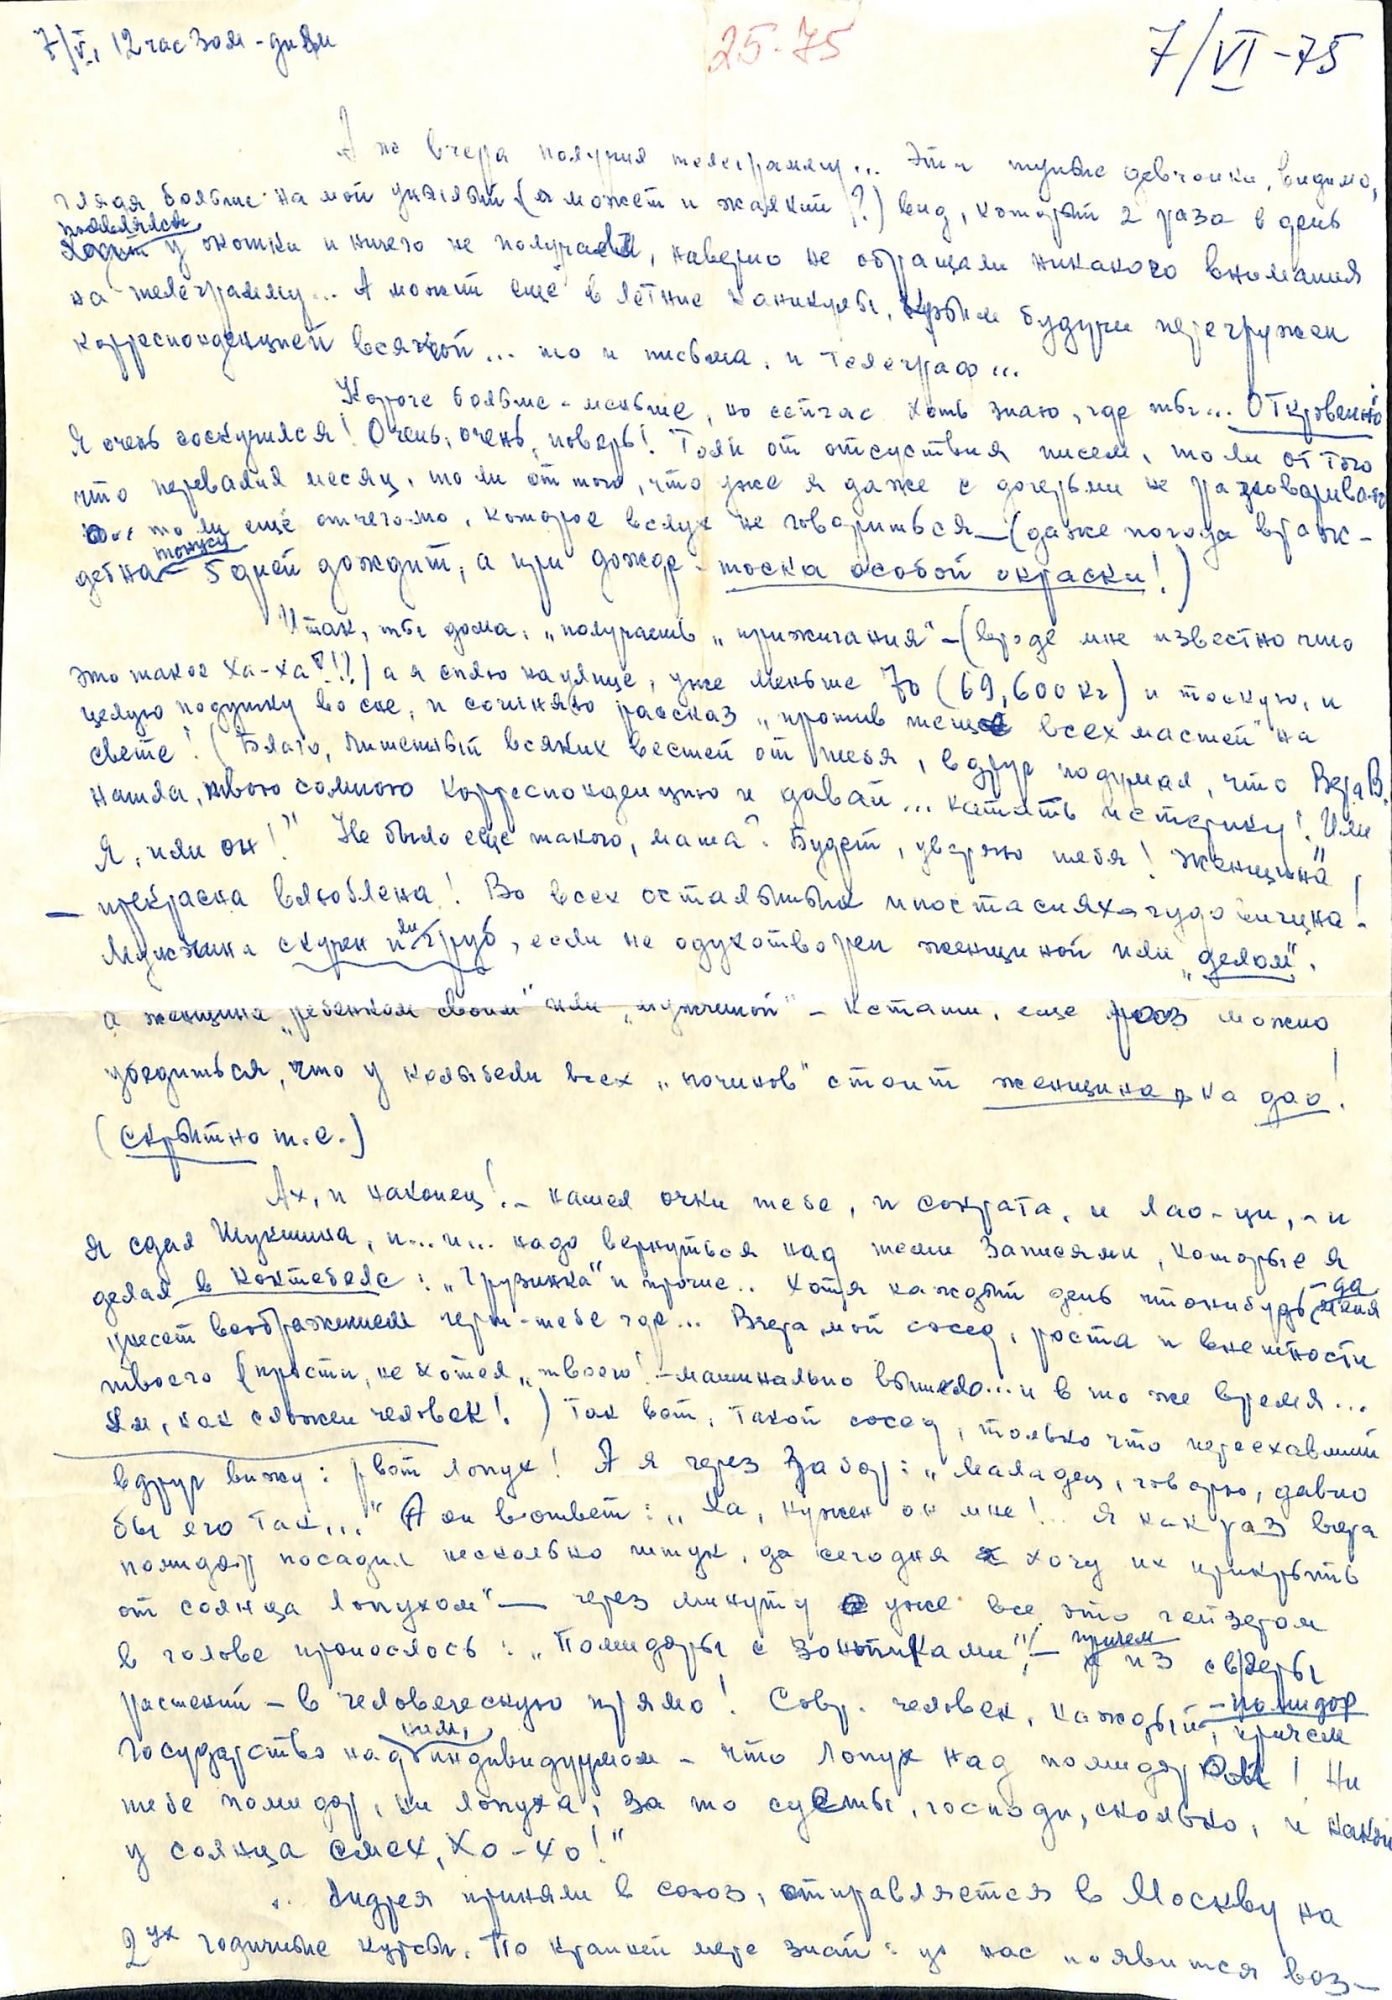 7/V, 12 час
25-75
7/VI-75
А не вчера получил телеграмму... Эти девчонки, видимо,
глядя больше на мой унылый (а может и жалкий?) вид, который 2 раза в день
появлялся
у окошки и ничего не получал, наверно не обращали никакого внимания
на телеграмму... А может ещё в летние каникулы, Крым будучи перегружен
корреспонденцией всякой... то и письма, и телеграф...
Короче больше-меньше, но сейчас хоть знаю, где ты... Откровенно
Я очень соскучился! Очень, очень, поверь! То ли от отсутствия писем, то ли от того
что перевалил месяц, то ли от того, что уже я даже с дочерьми не разговариваю
то ли ещё отчего-то, которое вслух не говориться - (даже погода враж-
тонусу
дебна - 5 дней дождит, а при дожде - тоска особой окраски!)
Итак, ты дома, „получаешь „прижигания" - (вроде мне известно что
это такое Ха-ха?!!?) а я сплю на улице, уже меньше 70 (69,600 кг) и тоскую, и
целую подушку во сне, и сочиняю рассказ „против тещ всех мастей" на
свете! (Благо, лишенный всяких вестей от тебя, вдруг подумал, что Вера В.
нашла твою корреспонденцию и давай... катать истерику! Или
Я, или он!" Не было еще такого, мама? Будет, уверяю тебя! Женщина
- прекрасна влюблена! Во всех остальных ипостасях - чудовищна!
Мужчина скучен или груб, если не одухотворен женщиной или „делом",
а женщина „ребенком своим" или „мужчиной" - кстати, еще раз можно
убедиться, что у колыбели всех „починов" стоит женщина, ка дао!
(скрытно т.е.)
Ах, и наконец! - нашел очки тебе, и Сократа, и Лао-ци, - и
я сдал Шукшина, и... и... надо вернуться над теми записями, которые я
делал в Коктебеле: „Грузинка" и прочие.. Хотя каждый день чтонибудь - да
унесет воображением черт-тебе где... Вчера мой сосед, роста и внешности
твоего (прости, не хотел „твоего! - машинально вышло... и в то же время...
как сложен человек!) Так вот, такой сосед, только что переехавший
вдруг вижу: рвет лопух! А я через забор: „Маладец, говорю, давно
бы его так..." А он в ответ: „Ха, нужен он мне!.. Я как раз вчера
помидор посадил несколько штук, да сегодня хочу их прикрыть
от солнца лопухом" - через минуту уже все это гейзером
в голове пронослось: „Помидоры с зонтиками"! -
причем
из сферы
растений - в человеческую прямо! Совр. человек, каждый, - помидор
ним,
государство над индивидуумом - что лопух над помидором! Ни
тебе помидор, ни лопуха, за то суеты, господи, сколько, и какой
у солнца смех, Хо-хо!"
.. Андрея приняли в союз, отправляется в Москву на
2ух годичные курсы. По крайней мере знай: у нас появится воз-